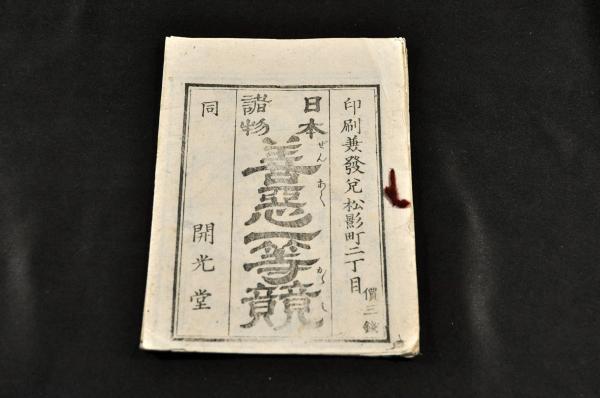 印刷兼發兌松影町二丁目
價三錢
日本
諸物
善惡一等競
ぜん
あく
同 開光堂